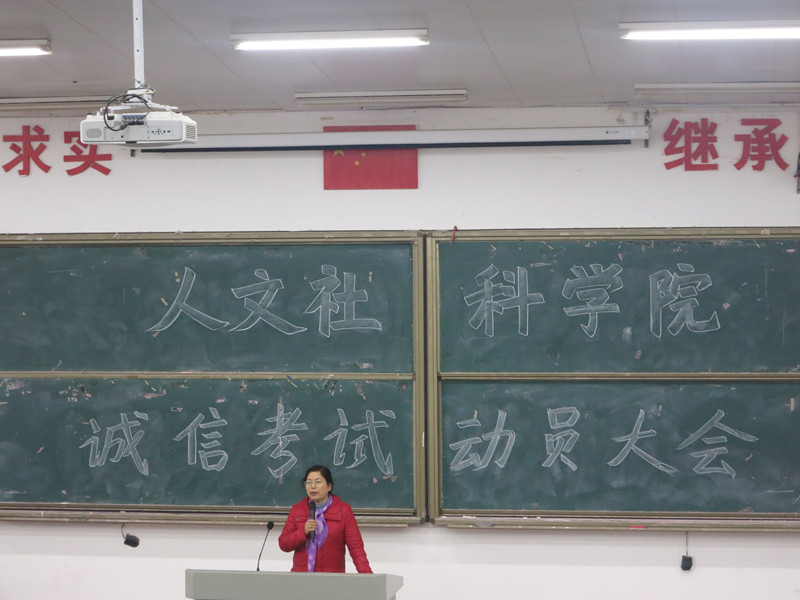 求实
继承
人文社科学院
诚信考试动员大会